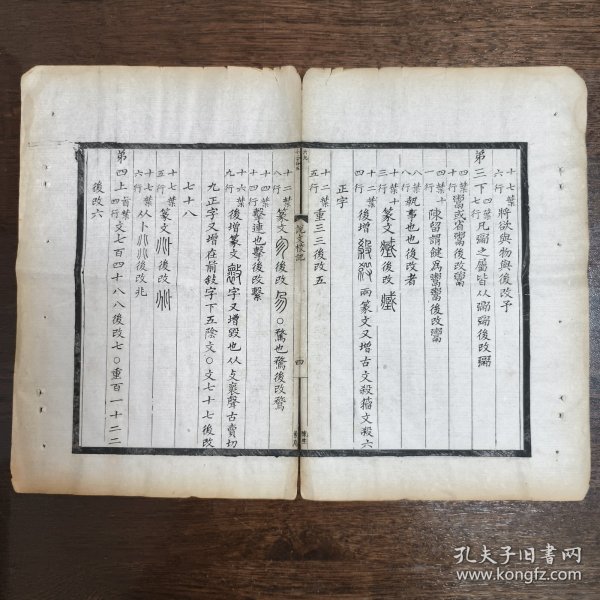 十七葉六行 將欲與物與後改予
第三下 四葉七行 凡𩰲之屬皆从𩰲𩰲後改𩰲
四葉四行 鬻或省鬻後改鬻
四葉十一行 陳留謂鍵爲鬻鬻後改鬻
八葉八行 執事也也後改者
十葉三行 篆文 後改
十二葉四行 後增 兩篆文又增古文殺籀文殺六
正字
十二葉五行 重三三後改五
說文校記
四
十二葉八行 篆文 後改 〇騖也騖後改騖
十四葉四行 擊連也擊後改繫
十六葉九行 後增篆文 字又增毀也从攴褱聲古賣切
九正字又增在前敍字下五陰文〇文七十七後改
七十八
十七葉五行 篆文 後改
十七葉六行 从卜 後改兆
第四上 首葉四行 文七百四十八八後改七〇重百一十二二
後改六
孔夫子旧书网
www.kongfz.com